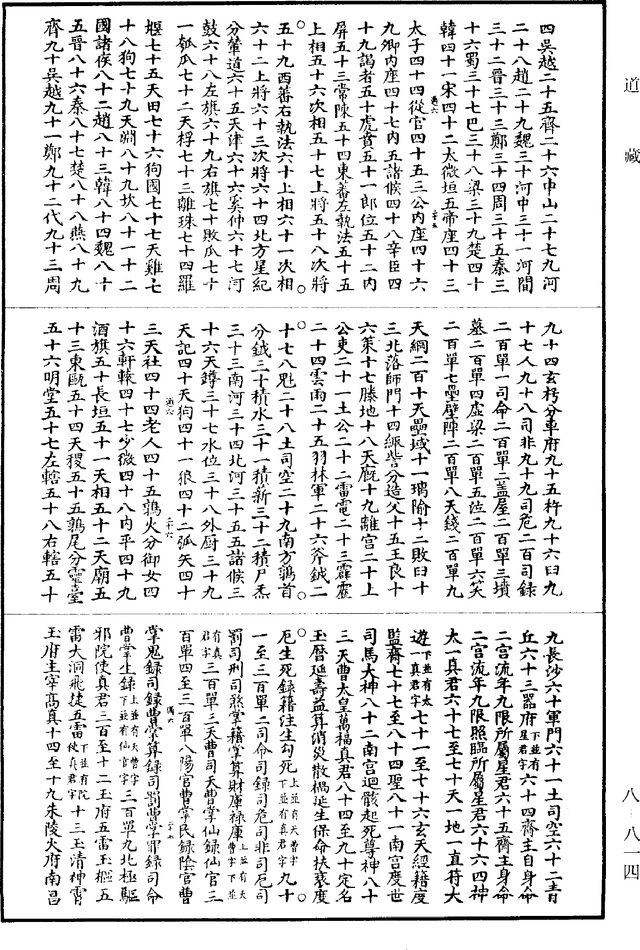 道藏
四吳越二十五齊二十六中山二十七九河
二十八趙二十九魏三十河中三十一河間
三十二晉三十三鄭三十四周三十五秦三
十六蜀三十七巴三十八梁三十九楚四十
韓四十一宋四十二太微垣五帝座四十三
太子四十四從官四十五三公內座四十六
九卿內座四十七內五諸候四十八辛臣四
十九謁者五十虎賁五十一郎位五十二內
屏五十三常陳五十四東蕃左執法五十五
上相五十六次相五十七上將五十八次將
五十九西蕃右執法六十上相六十一次相
六十二上將六十三次將六十四北方星紀
分輦道六十五天津六十六奚仲六十七河
鼓六十八左旗六十九右旗七十敗瓜七十
一瓠瓜七十二天桴七十三離珠七十四羅
堰七十五天田七十六狗國七十七天雞七
十八狗七十九天淵八十九坎八十一十二
國諸侯八十二趙八十三韓八十四魏八十
五晉八十六秦八十七楚八十八燕八十九
齊九十吳越九十一鄭九十二代九十三周
九十四玄枵分車府九十五杵九十六臼九
十七人九十八司非九十九司危二百司錄
二百單一司命二百單二蓋屋二百單三墳
墓二百單四虛梁二百單五泣二百單六哭
二百單七壘壁陣二百單八天錢二百單九
天綱二百十天壘城十一璃瑜十二敗臼十
三北落師門十四娵訾分造父十五王良十
六策十七螣地十八天廐十九離宮二十上
公吏二十一土公二十二雷電二十三霹靂
二十四雲雨二十五羽林軍二十六斧鉞二
十七八魁二十八土司空二十九南方鶉首
分鉞三十積水三十一積薪三十二積尸炁
三十三南河三十四北河三十五五諸候三
十六天罇三十七水位三十八外厨三十九
天記四十天狗四十一狼四十二弧矢四十
三天社四十四老人四十五鶉火分御女四
十六軒轅四十七少微四十八內平四十九
酒旗五十長垣五十一天相五十二天廟五
十三東甌五十四天稷五十五鶉尾分靈臺
五十六明堂五十七左轄五十八右轄五十
九長沙六十軍門六十一土司空六十二青
丘六十三器府下並有星君字六十四齊主自身命
二宮流年九限所屬星君六十五齊主身命
二宮流年九限照臨所屬星君六十六四神
太一真君六十七至七十天一地一直符太
遊下並有太一真君字七十一至七十六玄天經籍度
監齋七十七至八十四聖八十一南宮度世
司馬大神八十二南宮迴骸起死尊神八十
三天曹太皇萬福真君八十四至九十定名
玉曆延壽益算消災散禍延生保命扶衰度
厄生死錄籍注生勾死上並有天曹字下並有真君字九十
一至三百單二司命司錄司危司非司厄司
罰司刑司殺掌籍掌算財庫祿庫上並有天曹字下並
有真君字三百單三天曹司天曹掌仙錄仙官三
百單四至三百單八陽官曹掌民錄陰官曹
掌鬼錄司錄曹掌算錄司罰曹掌罪錄司命
曹掌生錄上並有天曹字下並有仙官字三百單九北極驅
邪院使真君三百至十二玉府五雷玉樞五
雷大洞飛捷五雷下並有院使真君字十三玉清神霄
玉府主宰高真十四至十九朱陵火府南昌
八·八一四